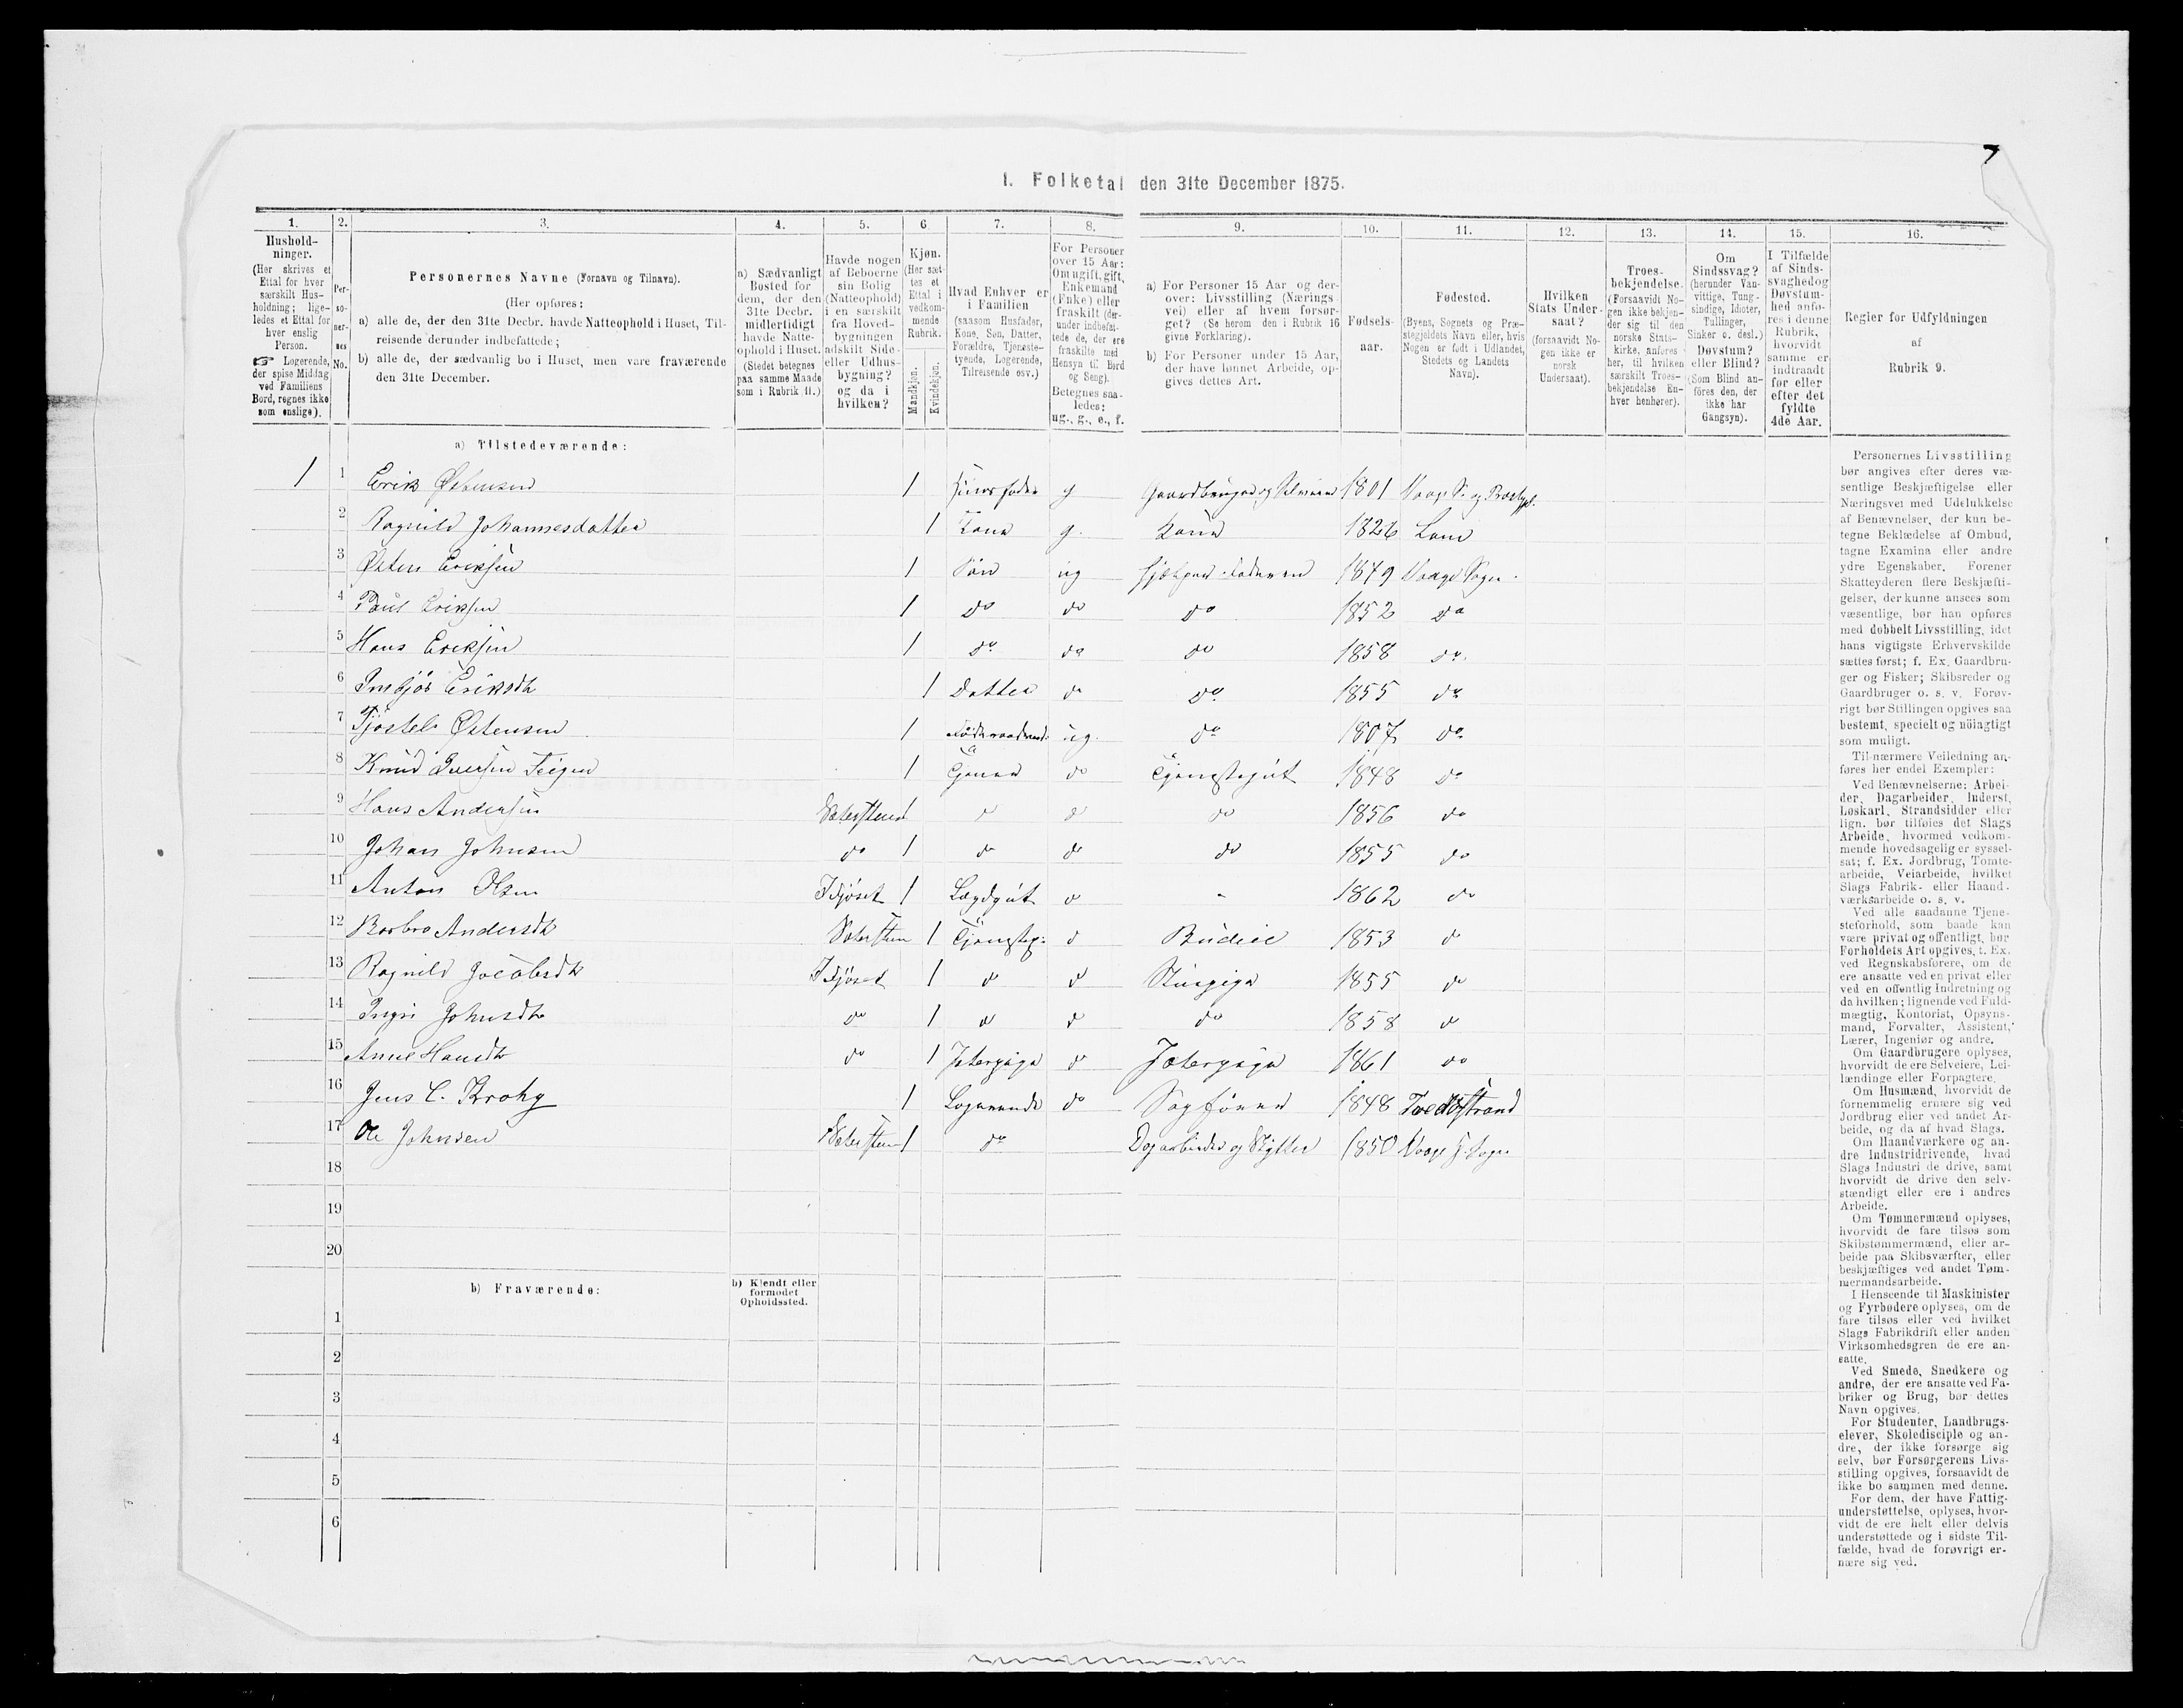 I. Folketal den 31te December 1875.
1. 2. 3. 4. 5. 6. 7. 8. 9. 10. 11. 12. 13. 14. 15. 16.
Hushold-
ninger.
(Her skrives et
Ettal for hver
særskilt Hus-
holdning; lige-
ledes et Ettal for
hver enslig
Person.
☞ Logerende,
der spise Middag
ved Familiens
Bord, regnes ikke
som enslige).
Per-
so-
ner-
nes
No.
Personernes Navne (Fornavn og Tilnavn).
(Her opføres:
a) alle de, der den 31te Decbr. havde Natteophold i Huset, Til-
reisende derunder indbefattede;
b) alle de, der sædvanlig bo i Huset, men vare fraværende
den 31te December.
a) Sædvanligt
Bosted for
dem, der den
31te Decbr.
midlertidigt
havde Natte-
ophold i Huset.
(Stedet betegnes
paa samme Maade
som i Rubrik 11.)
Havde nogen
af Beboerne
sin Bolig
(Natteophold)
i en særskilt
fra Hoved-
bygningen
adskilt Side-
eller Udhus-
bygning?
og da i
hvilken?
Kjøn.
(Her sæt-
tes et
Ettal i
vedkom-
mende
Rubrik.
Mandkjøn.
Kvindekjøn.
Hvad Enhver er
i Familien
(saasom Husfader,
Kone, Søn, Datter,
Forældre, Tjeneste-
tyende, Logerende,
Tilreisende osv.)
For Personer
over 15 Aar:
Om ugift, gift,
Enkemand
(Enke) eller
fraskilt (der-
under indbefat-
tede de, der ere
fraskilte med
Hensyn til Bord
og Seng).
Betegnes saa-
ledes:
ug., g., e., f.
a) For Personer 15 Aar og der-
over: Livsstilling (Nærings-
vei) eller af hvem forsør-
get? (Se herom den i Rubrik 16
givne Forklaring).
b) For Personer under 15 Aar,
der have lønnet Arbeide, op-
gives dettes Art.
Fødsels-
aar.
Fødested.
(Byens, Sognets og Præ-
stegjeldets Navn eller, hvis
Nogen er født i Udlandet,
Stedets og Landets
Navn).
Hvilken
Stats Under-
saat?
(forsaavidt No-
gen ikke er
norsk
Undersaat).
Troes-
bekjendelse.
(Forsaavidt No-
gen ikke bekjen-
der sig til den
norske Stats-
kirke, anføres
her, til hvilken
særskilt Troes-
bekjendelse En-
hver henhører).
Om
Sindssvag?
(herunder Van-
vittige, Tung-
sindige, Idioter,
Tullinger,
Sinker o. desl.)
Døvstum?
eller Blind?
(Som Blind an-
føres den, der
ikke har
Gangsyn).
I Tilfælde
af Sinds-
svaghed og
Døvstum-
hed anfø-
res i denne
Rubrik,
hvorvidt
samme er
indtraadt
før eller
efter det
fyldte
4de Aar.
Regler for Udfyldningen
af
Rubrik 9.
a) Tilstedeværende:
1 1 Erik Østensen 1 Huusfader g Gaardbruger og Selveier 1801 Vaage S. og Præstgjl.
2 Ragnild Johannesdatter 1 Kone g. Kone 1826 Lom
3 Østen Eriksen 1 Søn ug Hjelper Faderen 1849 Vaage Sogn
4 Paul Eriksen 1 do do do 1852 do
5 Hans Eriksen 1 do do do 1858 do
6 Ingbjör Eriksdtr 1 Datter do do 1855 do
7 Tjøstel Østensen 1 ug. do 1807 do
8 Knud Iversen Teigen 1 Tjener do Tjenestegut 1848 do
9 Hans Andersen 1 do do do 1856 do
10 Johan Johnsen do 1 do do do 1855 do
11 Anton Olsen I Fjöset 1 Lægdgut do 1862 do
12 Barbro Andersdtr 1 Tjenestep. do Budeie 1853 do
13 Ragnild Jacobsdtr I Fjöset 1 do do 1855 do
14 Ingri Johnsdtr do 1 do do do 1858 do
15 Anne Hansdtr do 1 Jetergjga do Jetergjga 1861 do
16 Jens C. Krohg 1 Logerende do Sagfører 1848 Tvedestrand
17 Ole Johnsen 1 do Dagarbeider og Skytter 1850 Vaage H. Sogn
18
19
20
b) Fraværende:
b) Kjendt eller
formodet
Opholdssted.
1
2
3
4
5
6
Personernes Livsstilling
bør angives efter deres væ-
sentlige Beskjæftigelse eller
Næringsvei med Udelukkelse
af Benævnelser, der kun be-
tegne Beklædelse af Ombud,
tagne Examina eller andre
ydre Egenskaber. Forener
Skatteyderen flere Beskjæfti-
gelser, der kunne ansees som
væsentlige, bør han opføres
med dobbelt Livsstilling, idet
hans vigtigste Erhvervskilde
sættes først; f. Ex. Gaardbru-
ger og Fisker; Skibsreder og
Gaardbruger o. s. v. Forøv-
rigt bør Stillingen opgives saa
bestemt, specielt og nöiagtigt
som muligt.
Til nærmere Veiledning an-
føres her endel Exempler:
Ved Benævnelserne: Arbei-
der, Dagarbeider, Inderst,
Løskarl, Strandsidder eller
lign. bør tilføies det Slags
Arbeide, hvormed vedkom-
mende hovedsagelig er syssel-
sat; f. Ex. Jordbrug, Tomte-
arbeide, Veiarbeide, hvilket
Slags Fabrik- eller Haand-
værksarbeide o. s. v.
Ved alle saadanne Tjene-
steforhold, som baade kan
være privat og offentligt, bør
Forholdets Art opgives, f. Ex.
ved Regnskabsførere, om de
ere ansatte ved en privat eller
ved en offentlig Indretning og
da hvilken; lignende ved Fuld-
mægtig, Kontorist, Opsyns-
mand, Forvalter, Assistent,
Lærer, Ingeniør og andre.
Om Gaardbrugere oplyses,
hvorvidt de ere Selveiere, Lei-
lændinge eller Forpagtere.
Om Husmænd, hvorvidt de
fornemmelig ernære sig ved
Jordbrug eller ved andet Ar-
beide, og da af hvad Slags.
Om Haandværkere og an-
dre Industridrivende, hvad
Slags Industri de drive, samt
hvorvidt de drive den selv-
stændigt eller ere i andres
Arbeide.
Om Tømmermænd oplyses,
hvorvidt de fare tilsøs som
Skibstømmermænd, eller ar-
beide paa Skibsværfter, eller
beskjæftiges ved andet Tøm-
mermandsarbeide.
I Henseende til Maskinister
og Fyrbødere oplyses, om de
fare tilsøs eller ved hvilket
Slags Fabrikdrift eller anden
Virksomhedsgren de ere an-
satte.
Ved Smede, Snedkere og
andre, der ere ansatte ved Fa-
briker og Brug, bør dettes
Navn opgives.
For Studenter, Landbrugs-
elever, Skoledisciple og an-
dre, der ikke forsørge sig
selv, bør Forsørgerens Livs-
stilling opgives, forsaavidt de
ikke bo sammen med denne.
For dem, der have Fattig-
understøttelse, oplyses, hvor-
vidt de ere helt eller delvis
understøttede og i sidste Til-
fælde, hvad de forøvrigt er-
nære sig ved.